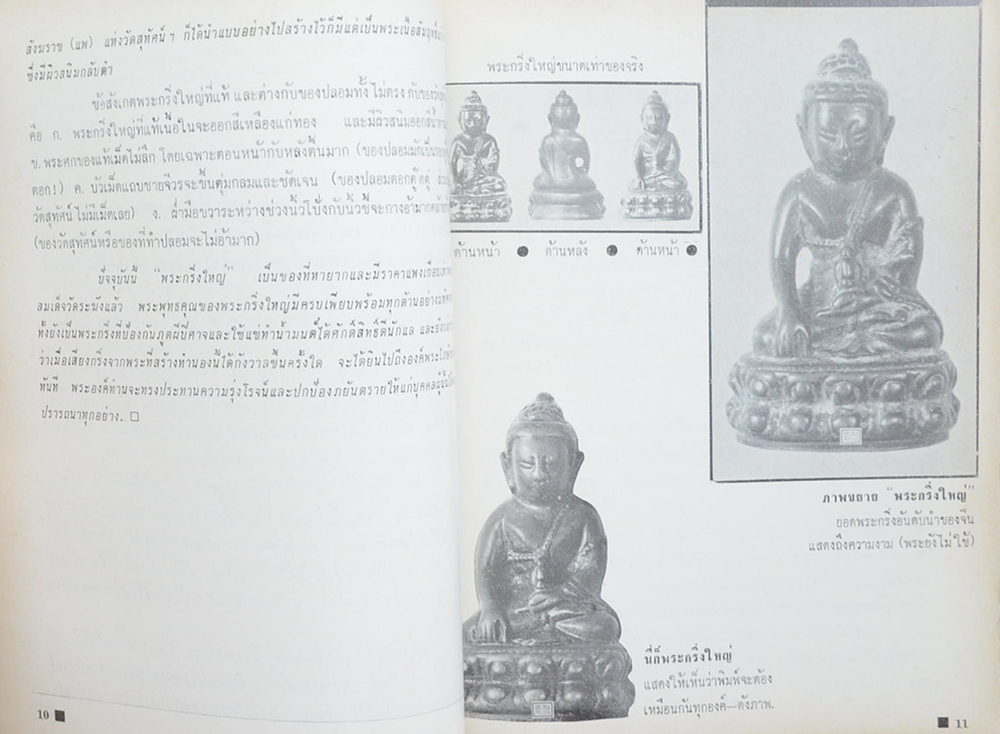 สังฆราช (แพ) แห่งวัดสุทัศน์ฯ ก็ได้นำแบบอย่างไปสร้างไว้ก็มีแต่เป็นพระเนื้อสัมฤทธิ์
ซึ่งมีผิวสนิมกลับดำ
ข้อสังเกตพระกริ่งใหญ่ที่แท้ และต่างกับของปลอมทั้งไม่ตรงกับของวัด
คือ ก. พระกริ่งใหญ่ที่แท้เนื้อในจะออกสีเหลืองแก่ทอง และมีผิวสนิมออกสี
ข. พระศกของแท้เม็ดไม่ลึก โดยเฉพาะตอนหน้ากับหลังตื้นมาก (ของปลอมมักเป็น
ตอก!) ค. บัวเม็ดแถบชายจีวรจะขึ้นตุ่มกลมและชัดเจน (ของปลอมตอกตุ๊ดตู่
วัดสุทัศน์ไม่มีเม็ดเลย) ง. ฝ่ามือขวาระหว่างช่วงนิ้วโป้งกับนิ้วชี้จะกางอ้ามาก
(ของวัดสุทัศน์หรือของที่ทำปลอมจะไม่อ้ามาก)
ปัจจุบันนี้ “พระกริ่งใหญ่” เป็นของที่หายากและมีราคาแพงเกือบ
สมเด็จวัดระฆังแล้ว พระพุทธคุณของพระกริ่งใหญ่มีครบเพียบพร้อมทุกด้านอย่าง
ทั้งยังเป็นพระกริ่งที่ป้องกันภูตผีปีศาจและใช้แช่ทำน้ำมนต์ได้ศักดิ์สิทธิ์ดีนักแล และ
ว่าเมื่อเสียงกริ่งจากพระที่สร้างทำนองนี้ได้กังวาลขึ้นครั้งใด จะได้ยินไปถึงองค์พระ
ทันที พระองค์ท่านจะทรงประทานความรุ่งโรจน์และปกป้องภยันตรายให้แก่บุคคล
ปรารถนาทุกอย่าง. □
10 ■
พระกริ่งใหญ่ขนาดเท่าของจริง
ด้านหน้า ● ด้านหลัง ● ด้านหน้า ●
ภาพขยาย “พระกริ่งใหญ่”
ยอดพระกริ่งอันดับนำของจีน
แสดงถึงความงาม (พระยังไม่ใช้)
นี่ก็พระกริ่งใหญ่
แสดงให้เห็นว่าพิมพ์จะต้อง
เหมือนกันทุกองค์—ดังภาพ.
■ 11